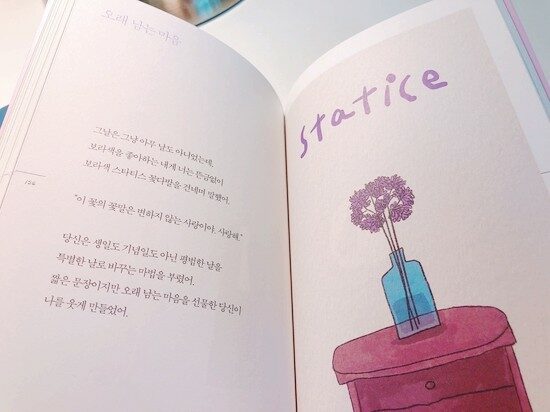 오래 남는 마음
그날은 그냥 아무 날도 아니었는데.
보라색을 좋아하는 내게 너는 뜬금없이
보라색 스타티스 꽃다발을 건네며 말했어.
"이 꽃의 꽃말은 변하지 않는 사랑이야. 사랑해."
당신은 생일도 기념일도 아닌 평범한 날을
특별한 날로 바꾸는 마법을 부렸어.
짧은 문장이지만 오래 남는 마음을 선물한 당신이
나를 웃게 만들었어.
124
statice